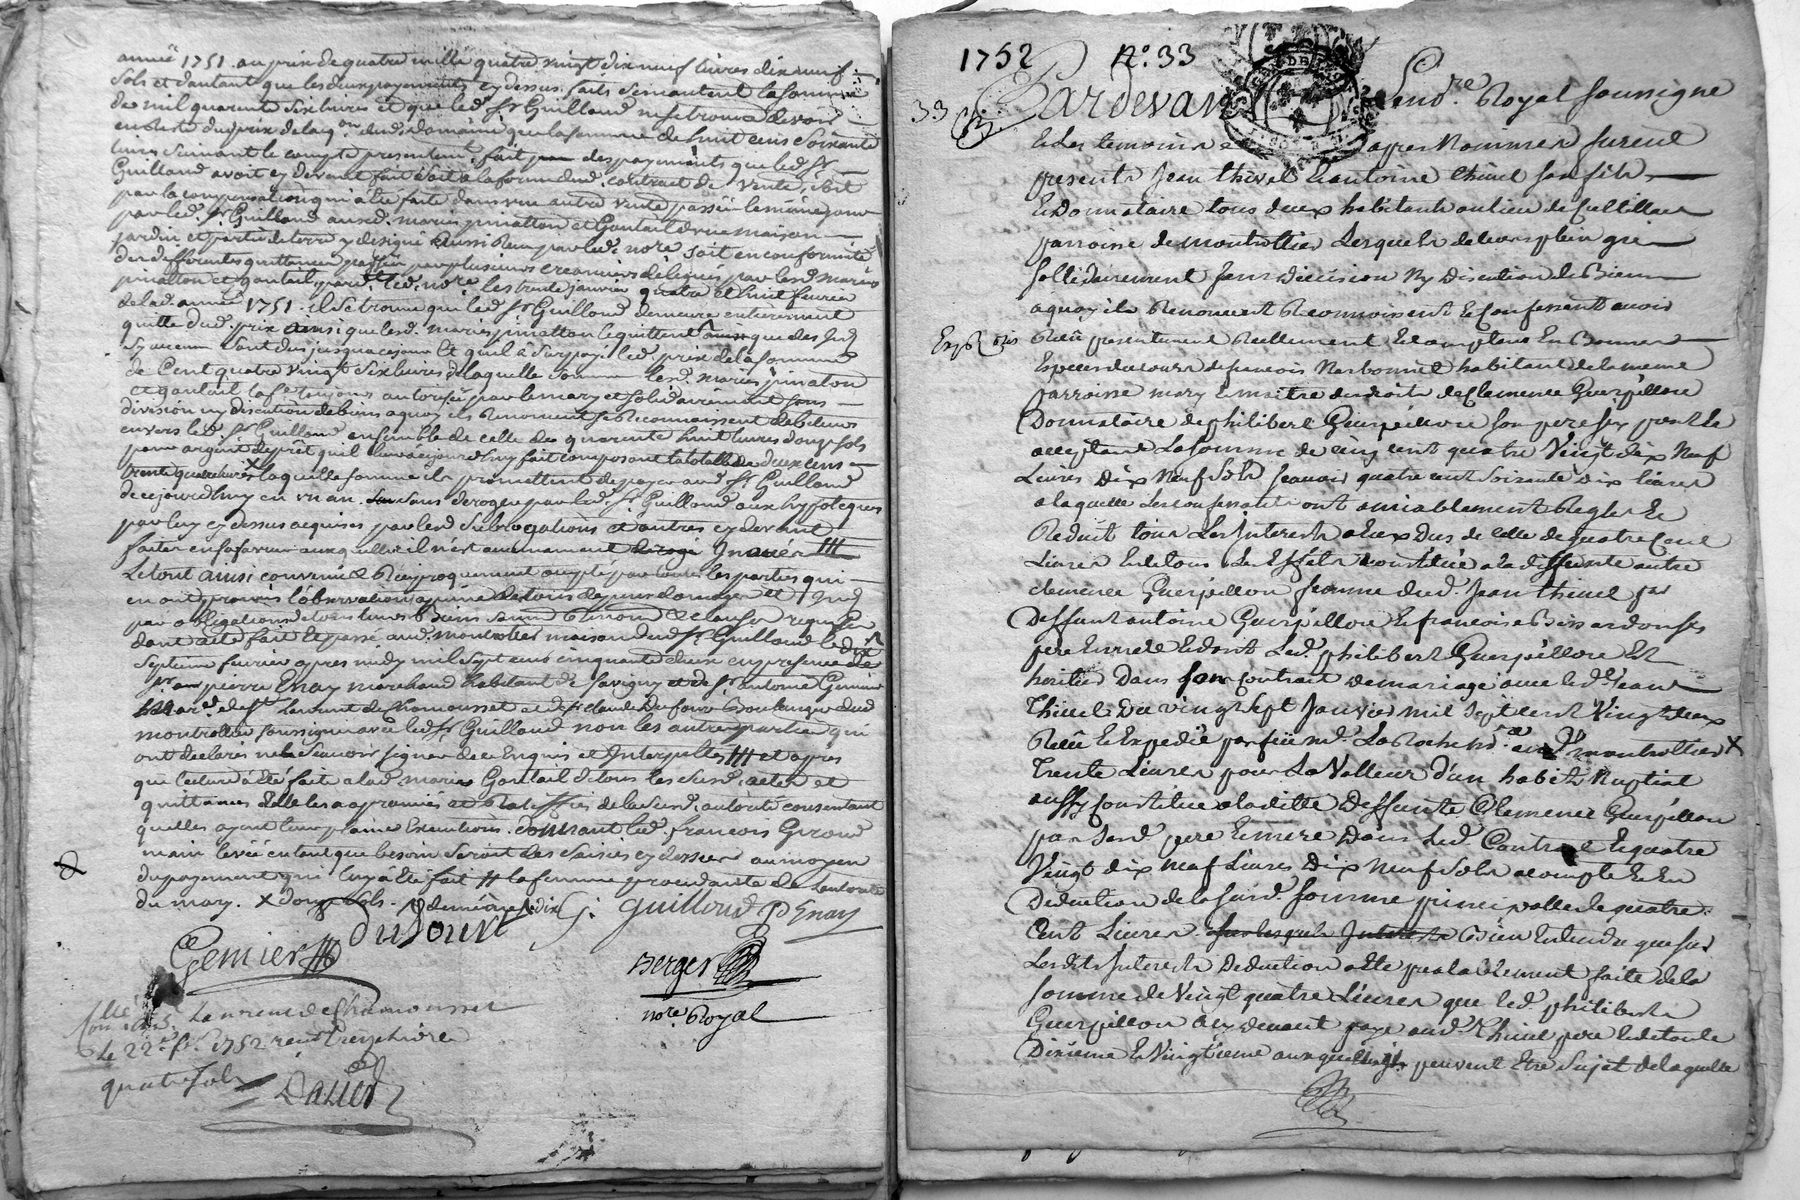 année 1751 au prix de quatre mille quatre vingt dix neuf livres dix neuf
sols et d'autant que les deux payements cy dessus faits se montent la somme
de mil quarente six livres et que led. Sr Guilloud ne se trouve devoir
en reste du prix de lad. domaine que la somme de huit cens soixante
livres suivant le compte presentemt. fait des payements que led. Sr
Guilloud avoit cy devant fait soit à la forme dud. contract de vente, soit
par la compensation qui a été faite dans une autre vente passée le même jour
par led. Sr Guilloud aud. mariés pinatton et Gontail d'une maison
jardin et partie de terre y designé aussi Reçu par led. nore soit en conformité
des differentes quittances passées par plusieurs creanciers délégués par lesd. mariés
pinatton et gontail, pard. led. nore les trente janvier quatre et huit fevrier
de lad. année 1751. il se trouve que led. Sr Guilloud demeure entierement
quitte dud. prix ainsi que lesd. mariés pinatton le quittent
sy aucun sont dus jusqu'a ce jour Et qu'il a surpayé led. prix de la somme
de Cent quatre vingt six livres de laquelle somme lesd. mariés pinaton
et gontail la fe toujours autorisée par le mary et solidairement sans
division ny discution de biens a quoy ils Renoncent se Reconnoissent debiteurs
envers led. Sr Guilloud ensemble de celle de quarente huit livres douze sols
pour argent de prêt qu'il leur a cejourd'huy fait composant la totalle de deux cens
trente quatre livres x laquelle somme ils promettent de payer aud. Sr Guilloud
de cejourd'huy en un an sans deroger par led. Sr Guilloud aux hypoteques
par luy cy dessus acquises par lesd. subrogations et autres cy devant
faites en sa faveur auxquelles il n'est aucunement
Le tout ainsi convenu et Reciproquement accepté par toutes les parties qui
en ont promis l'observation a peine de tous depens domages et
par obligations de tous leurs Biens
dont acte fait Et passé aud. montrottier maison dud. Sr Guilloud le dix
septieme fevrier apres midy mil sept cens cinquante deux en presence de
Sr pierre Enay marchand habitant de Savigny et de Sr antoine Gemier
de St Laurent de Chamousset et de Sr claude Dufour Boulanger dud.
montrottier soussignés avec led. Sr Guilloud non les autres parties qui
ont declarés ne le scavoir signer de ce Enquis et Interpellés et apres
que lecture a été faite a lad. mariée Gontail de tous les susd. actes et
quittances Elle les a approuvés et Ratiffiés de la susd. autorité consentant
qu'elles ayent leur pleine Execution. donnant led. françois Giroud
main levée en tant que besoin seroit des saisies cy dessus au moyen
du payement qui luy a été fait la femme procedante de l'autorité
du mary. x douze sols
Gemier Dufour J. Guilloud P Enay
Berger
nore Royal
Laurent de Chamousset
Le 22e fr. 1752
quatre sols
Dalier
1752 N° 33
33 Pardevant Le nore Royal soussigné
Et les temoins apres Nommés furent
presents Jean thivel Et antoine thivel son fils
Et Donnataire tous deux habitants au lieu de
parroisse de montrottier Lesquels de leurs plein gré
sollidairement sans division Ny Discution de Biens
a quoy ils Renoncent Reconnoissent Et Confessent avoir
Reçu presentement Reellement Et comptant En Bonnes
Especes du cours de françois Narbonnet habitant de la meme
parroisse mary Et maitre des droits de Clemence Guerpillon
Donnataire de philibert Guerpillon son pere icy present Et
acceptant La somme de cinq cent quatre Vingt dix Neuf
Livres Dix Neuf sols scavoir quatre cent soixante Dix livres
a laquelle Les confessants ont amiablement Regler Et
Reduit tous Les Interests a Eux Dus de celle de quatre Cent
Livres Et de tous Les Effets Constitué a la deffunte autre
clemence Guerpillon femme dud. Jean thivel par
Deffunt antoine Guerpillon Et francoise Bissardon ses
pere Et mere Et dont Led. philibert Guerpillon Est
heritier Dans son contract de mariage avec led. Jean
Thivel Du vingt sept Janvier mil sept cent Vingt deux
Reçu Et Expedié par feu Me. La Roche nore a montrottier x
Trente Livres pour La Valleur d'un habits Nuptial
aussy Constitué a laditte Deffunte Clemence Guerpillon
par sesd. pere Et mere Dans Led. Contract Et quatre
Vingt dix neuf Livres Dix Neuf sols a compte Et En
Deduction de la susd. somme principalle de quatre
Cent Livres Bien Entendu que sur
Lesdits Interests Deduction a Eté prealablement faite de la
somme de Vingt quatre Livres que led. philibert
Guerpillon a cy devant payé aud. Thivel pere Et de tout le
Dixieme Et Vingtieme auxquels ils peuvent Etre Sujet de laquelle